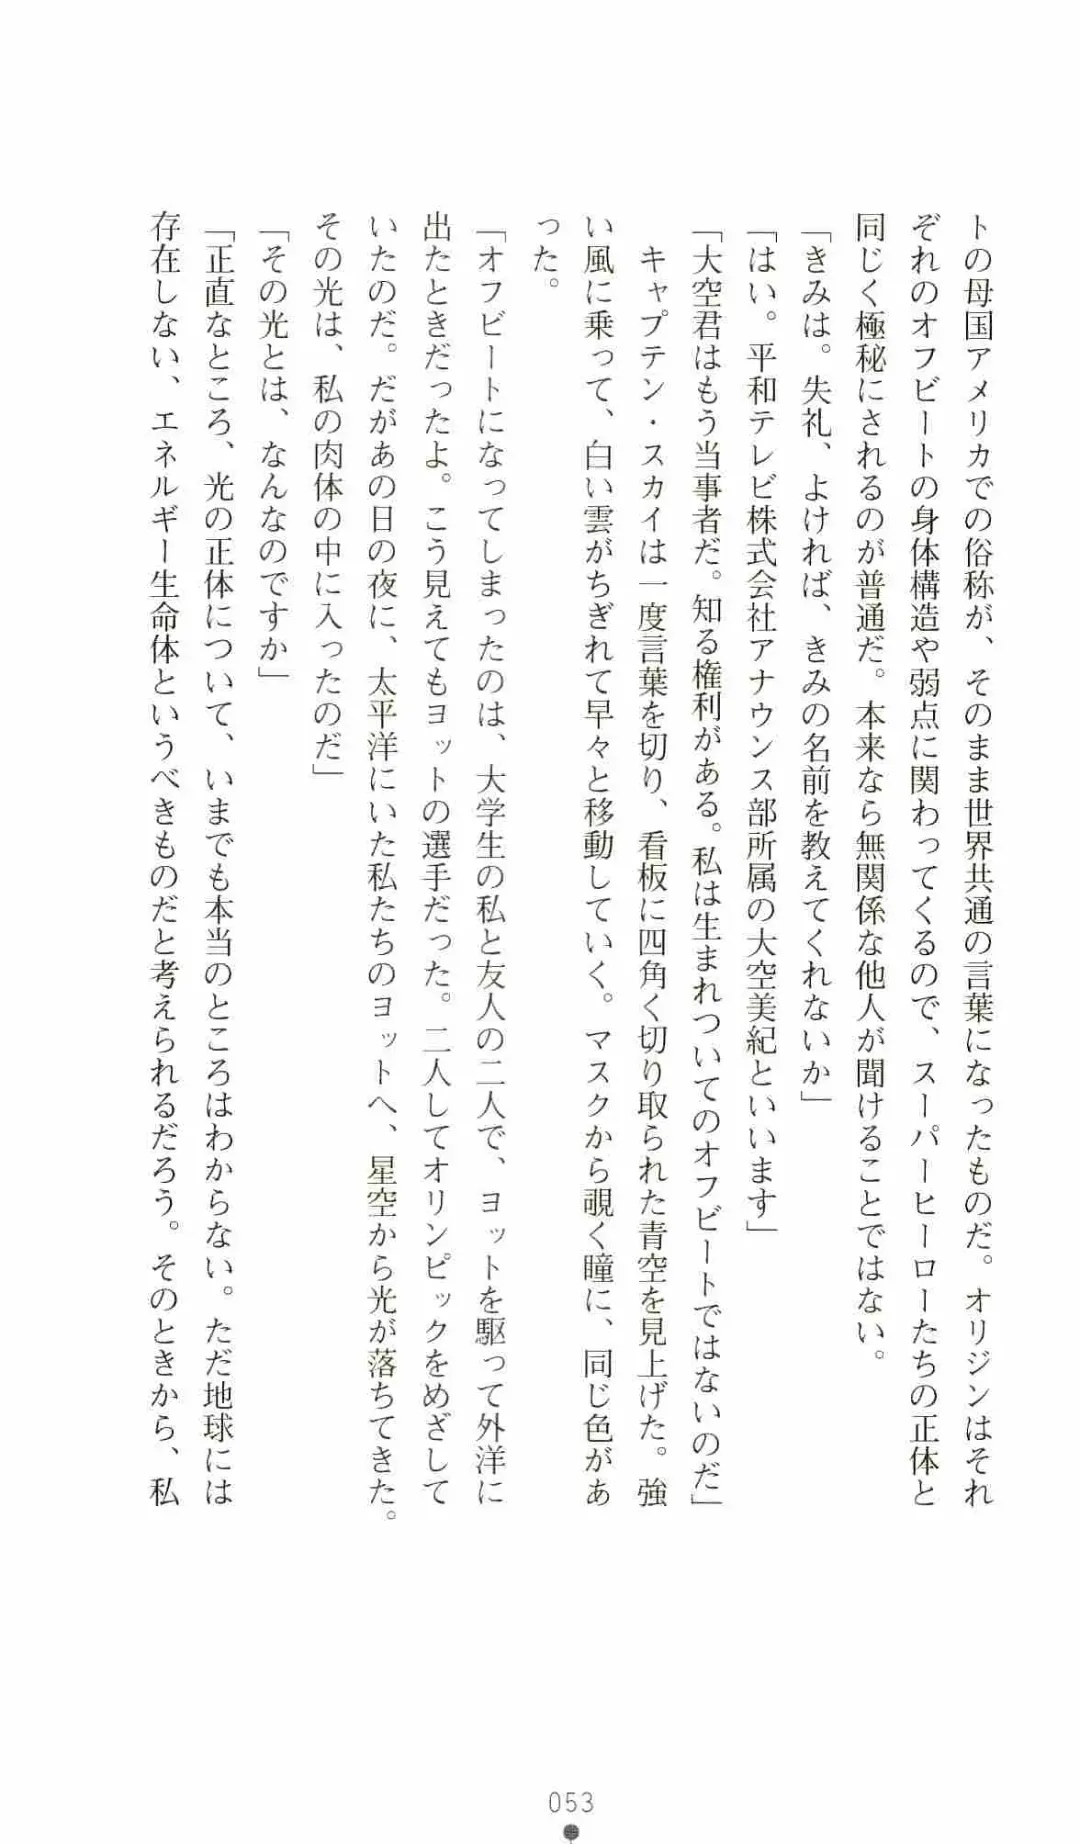 トの母国アメリカでの俗称が、そのまま世界共通の言葉になったものだ。オリジンはそれ
ぞれのオフビートの身体構造や弱点に関わってくるので、スーパーヒーローたちの正体と
同じく極秘にされるのが普通だ。本来なら無関係な他人が聞けることではない。
「きみは。失礼、よければ、きみの名前を教えてくれないか」
「はい。平和テレビ株式会社アナウンス部所属の大空美紀といいます」
「大空君はもう当事者だ。知る権利がある。私は生まれついてのオフビートではないのだ」
　キャプテン・スカイは一度言葉を切り、看板に四角く切り取られた青空を見上げた。強
い風に乗って、白い雲がちぎれて早々と移動していく。マスクから覗く瞳に、同じ色があ
った。
「オフビートになってしまったのは、大学生の私と友人の二人で、ヨットを駆って外洋に
出たときだったよ。こう見えてもヨットの選手だった。二人してオリンピックをめざして
いたのだ。だがあの日の夜に、太平洋にいた私たちのヨットへ、星空から光が落ちてきた。
その光は、私の肉体の中に入ったのだ」
「その光とは、なんなのですか」
「正直なところ、光の正体について、いまでも本当のところはわからない。ただ地球には
存在しない、エネルギー生命体というべきものだと考えられるだろう。そのときから、私
053